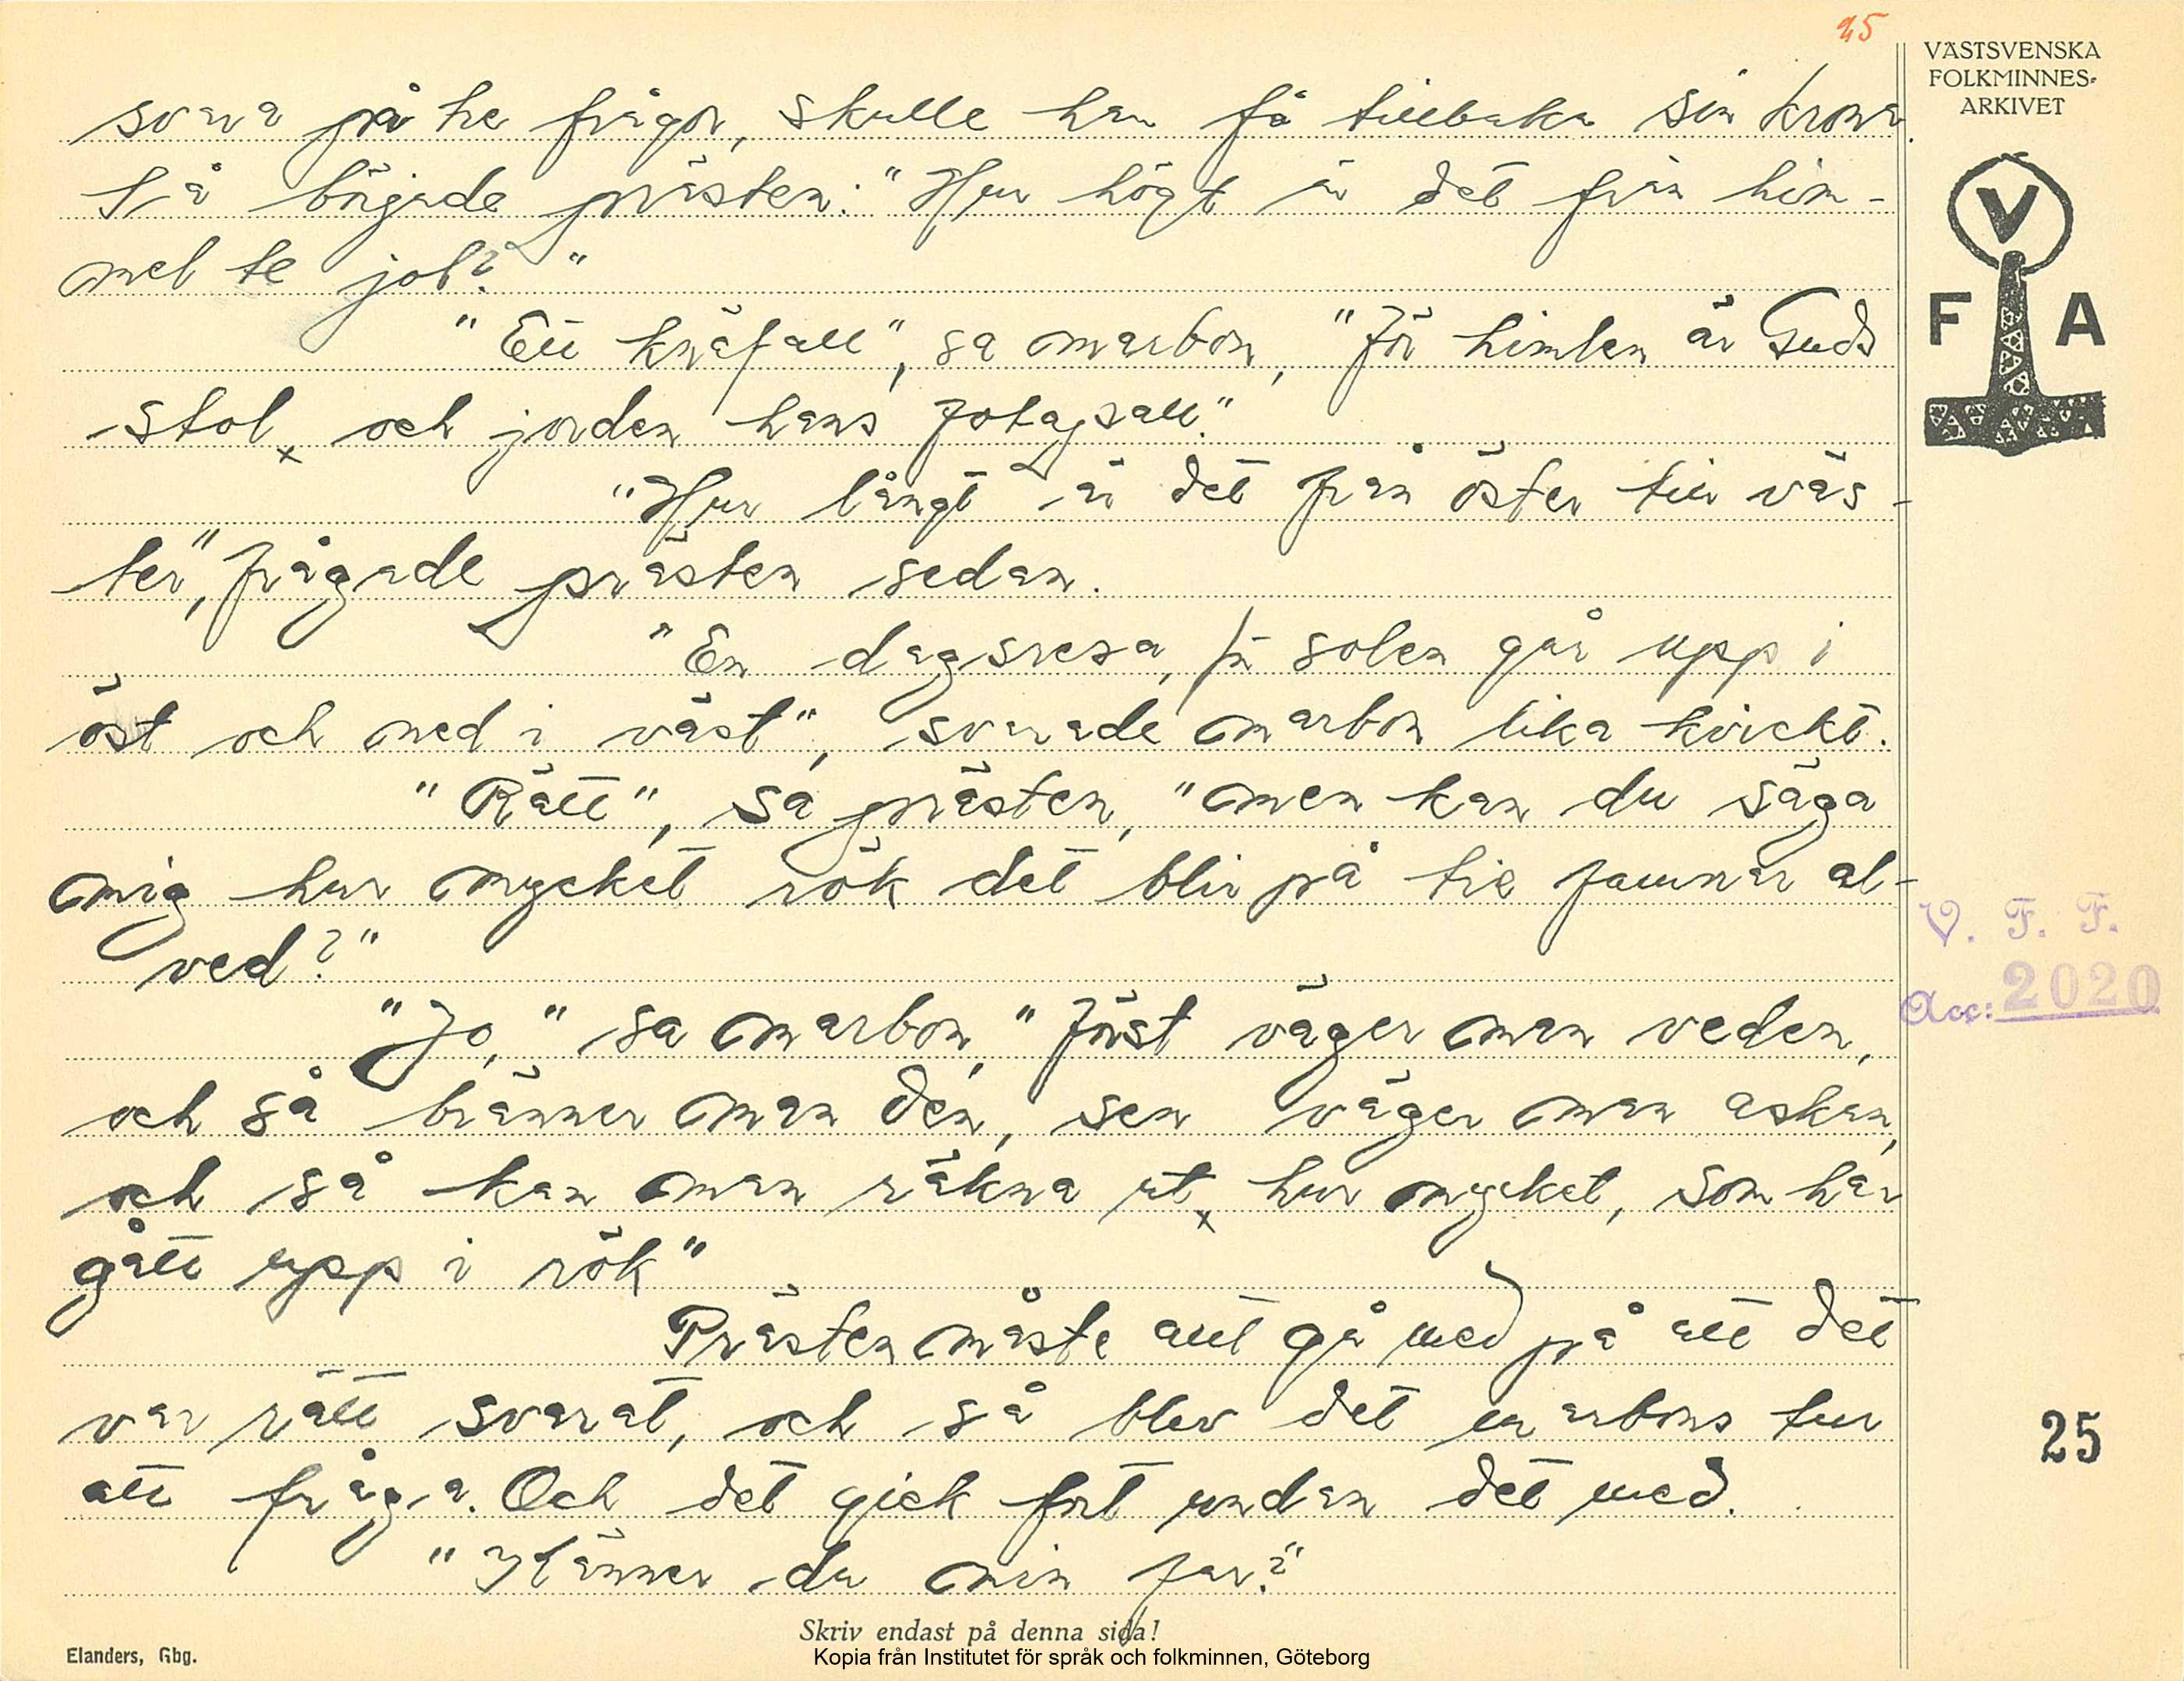 25
VÄSTSVENSKA
FOLKMINNES-
ARKIVET
V
F A
svara på tre frågor, skulle han få tillbaka sin krona.
Så började prästen: "Hur högt är det från him-
mel te jol?"
"Ett knäfall", sa marbon, "För himlen är Guds
stol, och jorden hans fotapall."
"Hur långt är det från öster till väs-
ter", frågade prästen sedan.
"En dagsresa, för solen går upp i
öst och ned i väst", svarade marbon lika kvickt.
"Rätt", sa prästen, "men kan du säga
mig hur mycket rök det blir på tie famnar al-
ved?"
"Jo," sa marbon, "Först väger man veden,
och så bränner man den, sen väger man askan,
och så kan man räkna ut, hur mycket, som har
gått upp i rök"
Prästen måste allt gå med på att det
var rätt svarat, och så blev det marbons tur
att fråga. Och det gick fort undan det med.
"Känner du min far?"
V. F. F.
Acc: 2020
25
Skriv endast på denna sida!
Elanders, Gbg.
Kopia från Institutet för språk och folkminnen, Göteborg